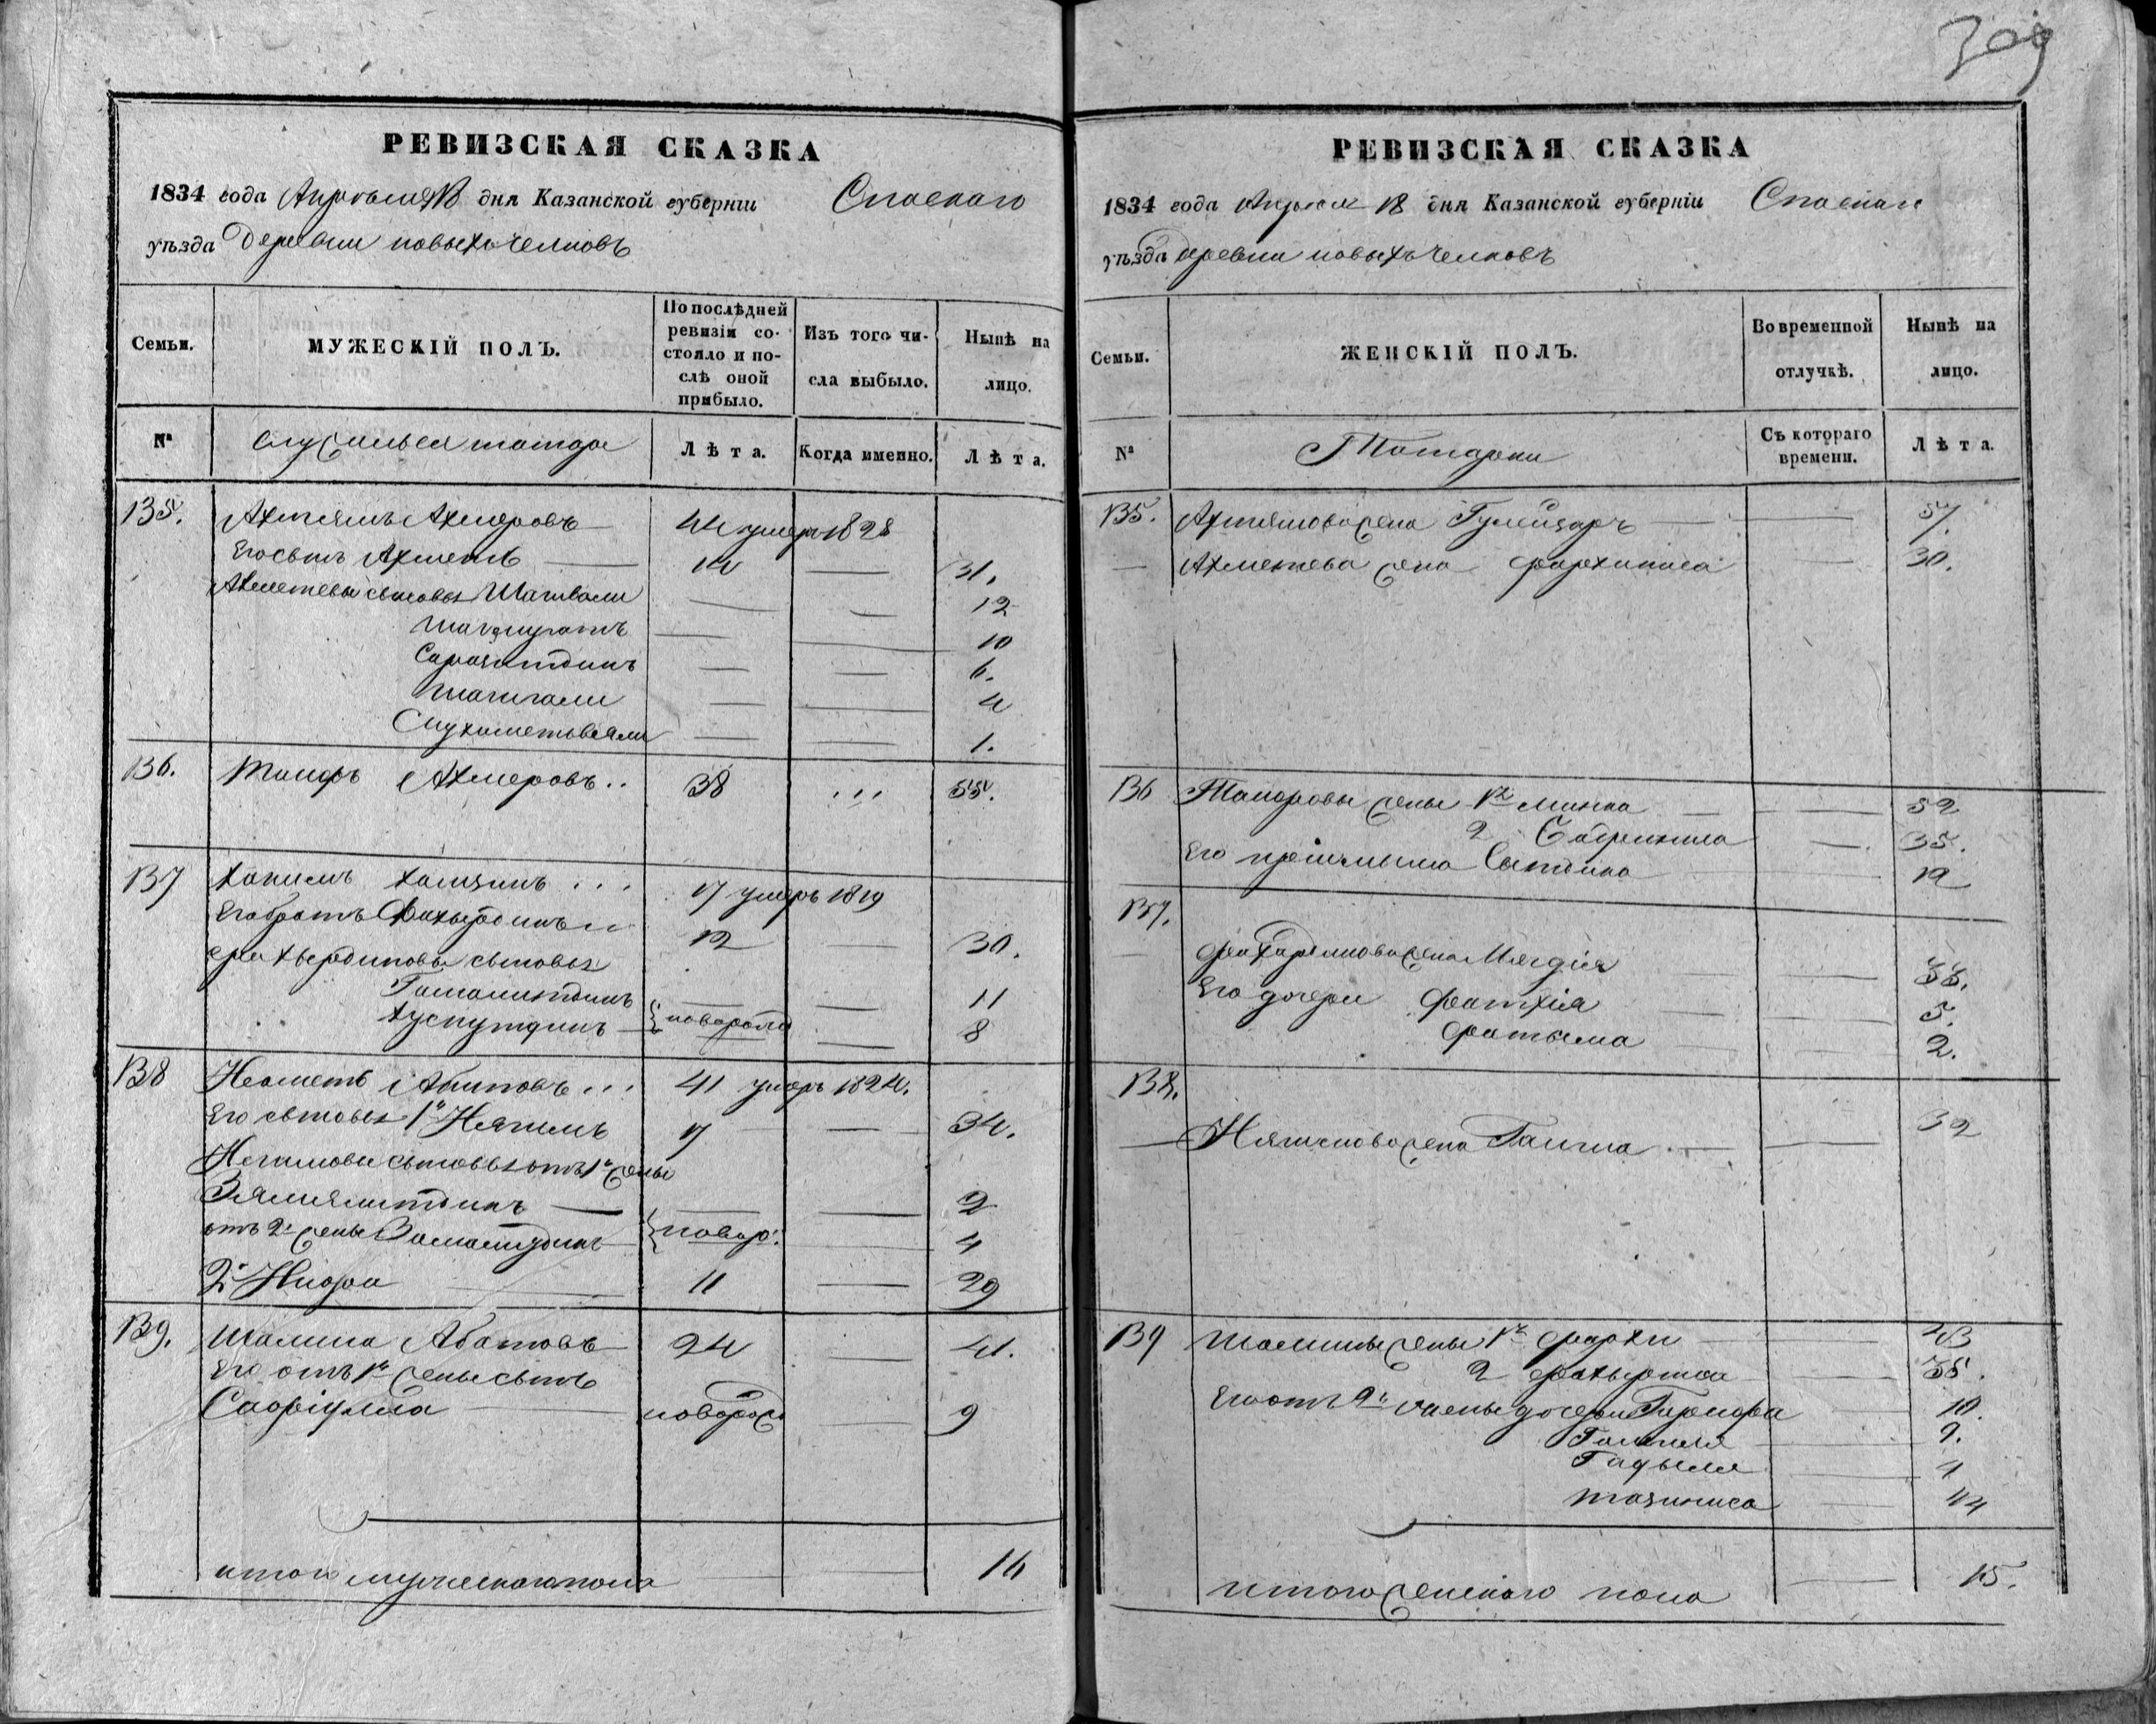 309
РЕВИЗСКАЯ СКАЗКА
1834 года Апреля 18 дня Казанской губерніи Спаскаго
уѣзда Деревни новыхъ челновъ
Семьи.
МУЖЕСКІЙ ПОЛЪ.
По послѣдней ревизіи состояло и послѣ оной прибыло.
Изъ того числа выбыло.
Нынѣ на лицо.
№
татара
Лѣта.
Когда именно.
Лѣта.
135. Ахтямъ Ахмеровъ 44 умеръ 1828
Его сынъ Ахметь 14 31.
Ахметевы сыновья Шагивали 12
Шагимуратъ 10
Саразитдинъ 6.
Шагигали 4
Мухаметвали 1.
136. Таиръ Ахмеровъ 38 55.
137 Хакимъ Хамзинъ 17 умеръ 1819
Его братъ Фахырдинъ 12 30.
Фахырдиновы сыновья
Гамалитдинъ 11
Хуснутдинъ новорож 8
138 Неаметь Абитовъ 41 умеръ 1824.
Его сыновья 1й Нягимъ 17 34.
Негимовы сыновья отъ 1й жены
Зялялитдинъ 2
отъ 2й жены Замалитдинъ новор: 4
2й 11 29
139. Шалиша Абатовъ 24 41.
Его отъ 1й жены сынъ
новорож 9
итого мужескаго пола 16
РЕВИЗСКАЯ СКАЗКА
1834 года Апреля 18 дня Казанской губерніи Спаскаго
уѣзда Деревни новыхъ челновъ
Семьи.
ЖЕНСКІЙ ПОЛЪ.
Во временной отлучкѣ.
Нынѣ на лицо.
№
Татарки
Съ котораго времени.
Лѣта.
135. Ахтямова жена 57.
Ахметева жена Фархиниса 30.
136 Таировы жены 1я 52
2 35.
Его 12
137.
Фахардинова жена Магдія 33.
Его дочери Фатхія 5.
Фатыма 2.
138.
Нягимова жена Галима 32
139 жены 1я Фархи 43
2 35.
Его отъ 2й жены дочери 10.
9.
4
Тазиниса
итого женскаго пола 15.